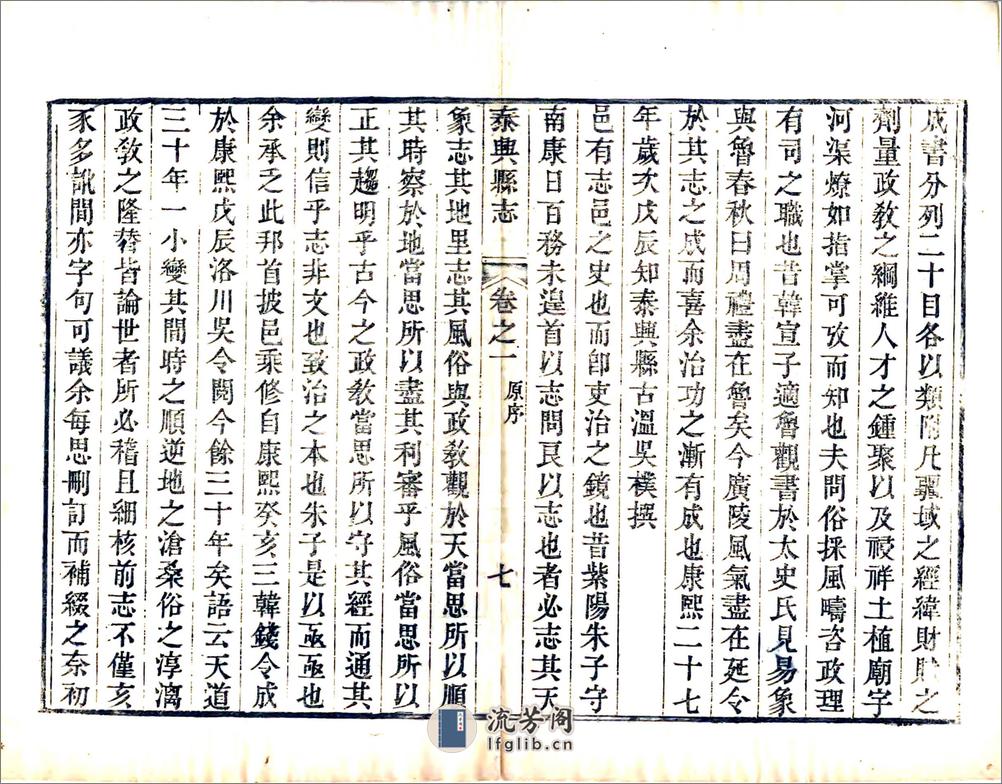 成書分列二十目各以類附凡疆域之經緯財賦之
劑量政敎之綱維人才之鍾聚以及祲祥土植廟宇
河渠燎如指掌可攷而知也夫問俗採風疇咨政理
有司之職也昔韓宣子適魯觀書於太史氏見易象
與魯春秋曰周禮盡在魯矣今廣陵風氣盡在延令
於其志之成而喜余治功之漸有成也康熙二十七
年歲次戊辰知泰興縣古溫吳樸撰
邑有志邑之史也而卽吏治之鏡也昔紫陽朱子守
南康日百務未遑首以志問良以志也者必志其天
泰興縣志 卷之一 原序 七
象志其地里志其風俗與政敎觀於天當思所以順
其時察於地當思所以盡其利審乎風俗當思所以
正其趨明乎古今之政敎當思所以守其經而通其
變則信乎志非文也致治之本也朱子是以亟亟也
余承乏此邦首披邑乘修自康熙癸亥三韓錢令成
於康熙戊辰洛川吳令閱今餘三十年矣語云天道
三十年一小變其間時之順逆地之滄桑俗之淳漓
政敎之隆替皆論世者所必稽且細核前志不僅亥
豕多訛間亦字句可議余每思刪訂而補綴之奈初
流芳阁
lfglib.cn